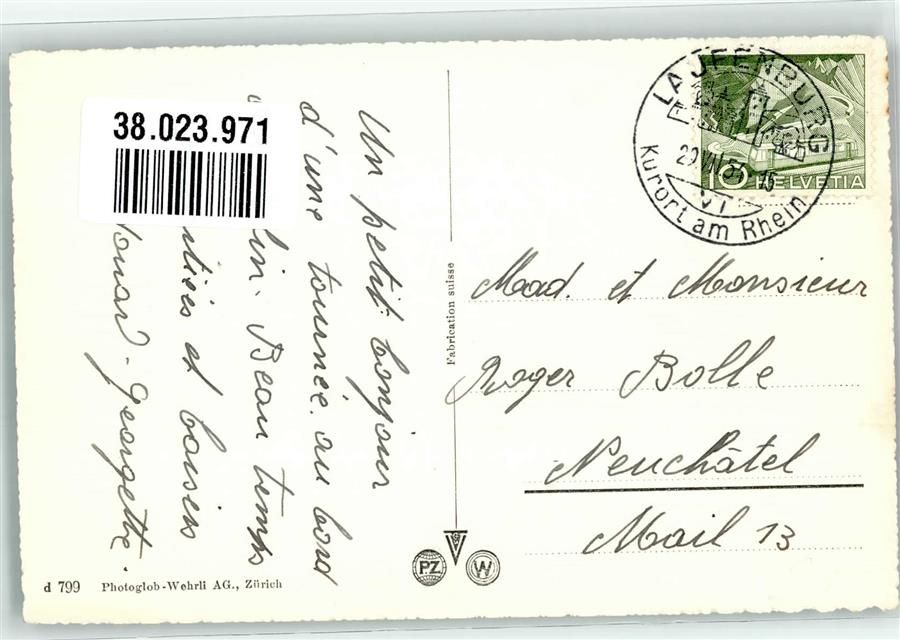 38.023.971
Un petit bonjour
d'une tournée au bord
Beau temps
et baisers
Georgette.
Fabrication suisse
LAUFENBURG
Kurort am Rhein
10 HELVETIA
Mad. et Monsieur
Roger Bolle
Neuchâtel
Mail 13
PZ
W
d 799 Photoglob-Wehrli AG., Zürich